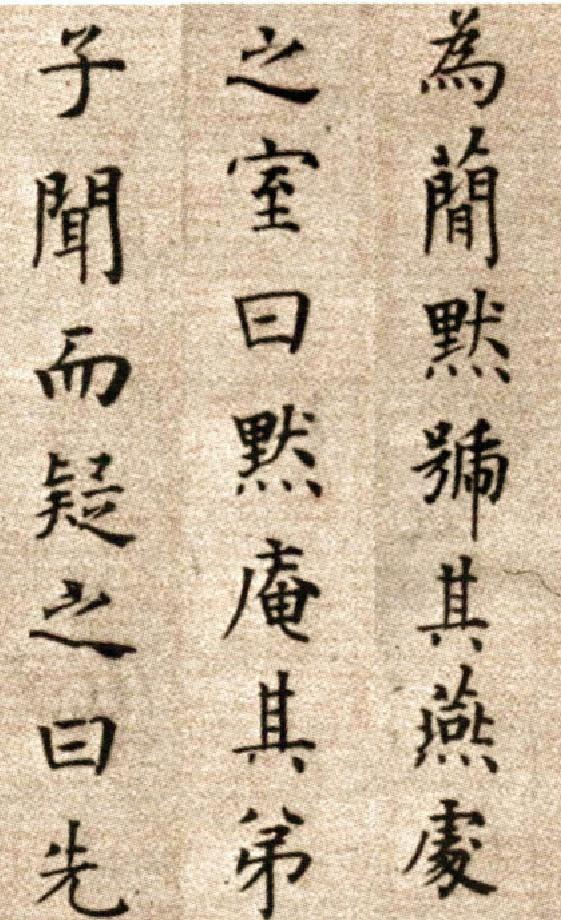 為蕑默號其燕處
之室曰默庵其弟
子聞而疑之曰先